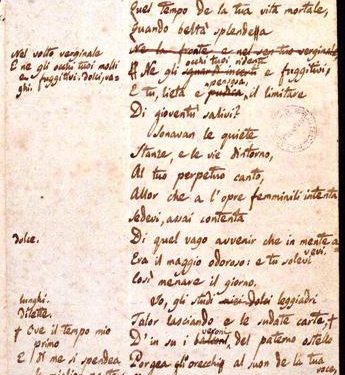 Quel tempo de la tua vita mortale,
Quando beltà splendea
Nel volto verginale
Ne la fronte e nel sen tuo verginale,
E ne gli occhi tuoi molli
e fuggitivi. dolci, va-
ghi.
occhi tuoi ridenti
Ne gli sguardi incerti e fuggitivi,
pensosa,
E tu, lieta e pudica, il limitare
Di gioventù salivi?
Sonavan le quiete
Stanze, e le vie dintorno,
Al tuo perpetuo canto,
Allor che a l'opre femminili intenta
Sedevi, assai contenta
dolce.
Di quel vago avvenir che in mente a-
vevi.
Era il maggio odoroso: e tu solevi
Così menare il giorno.
lunghi.
Io, gli studi miei dolci leggiadri
Dilette.
Talor lasciando e le sudate carte, †
† Ove il tempo mio
primo
veroni
D' in su i balconi, del paterno ostello
E di me si spendea
Porgea gli orecchi al suon de la tua
voce,
la miglior parte;